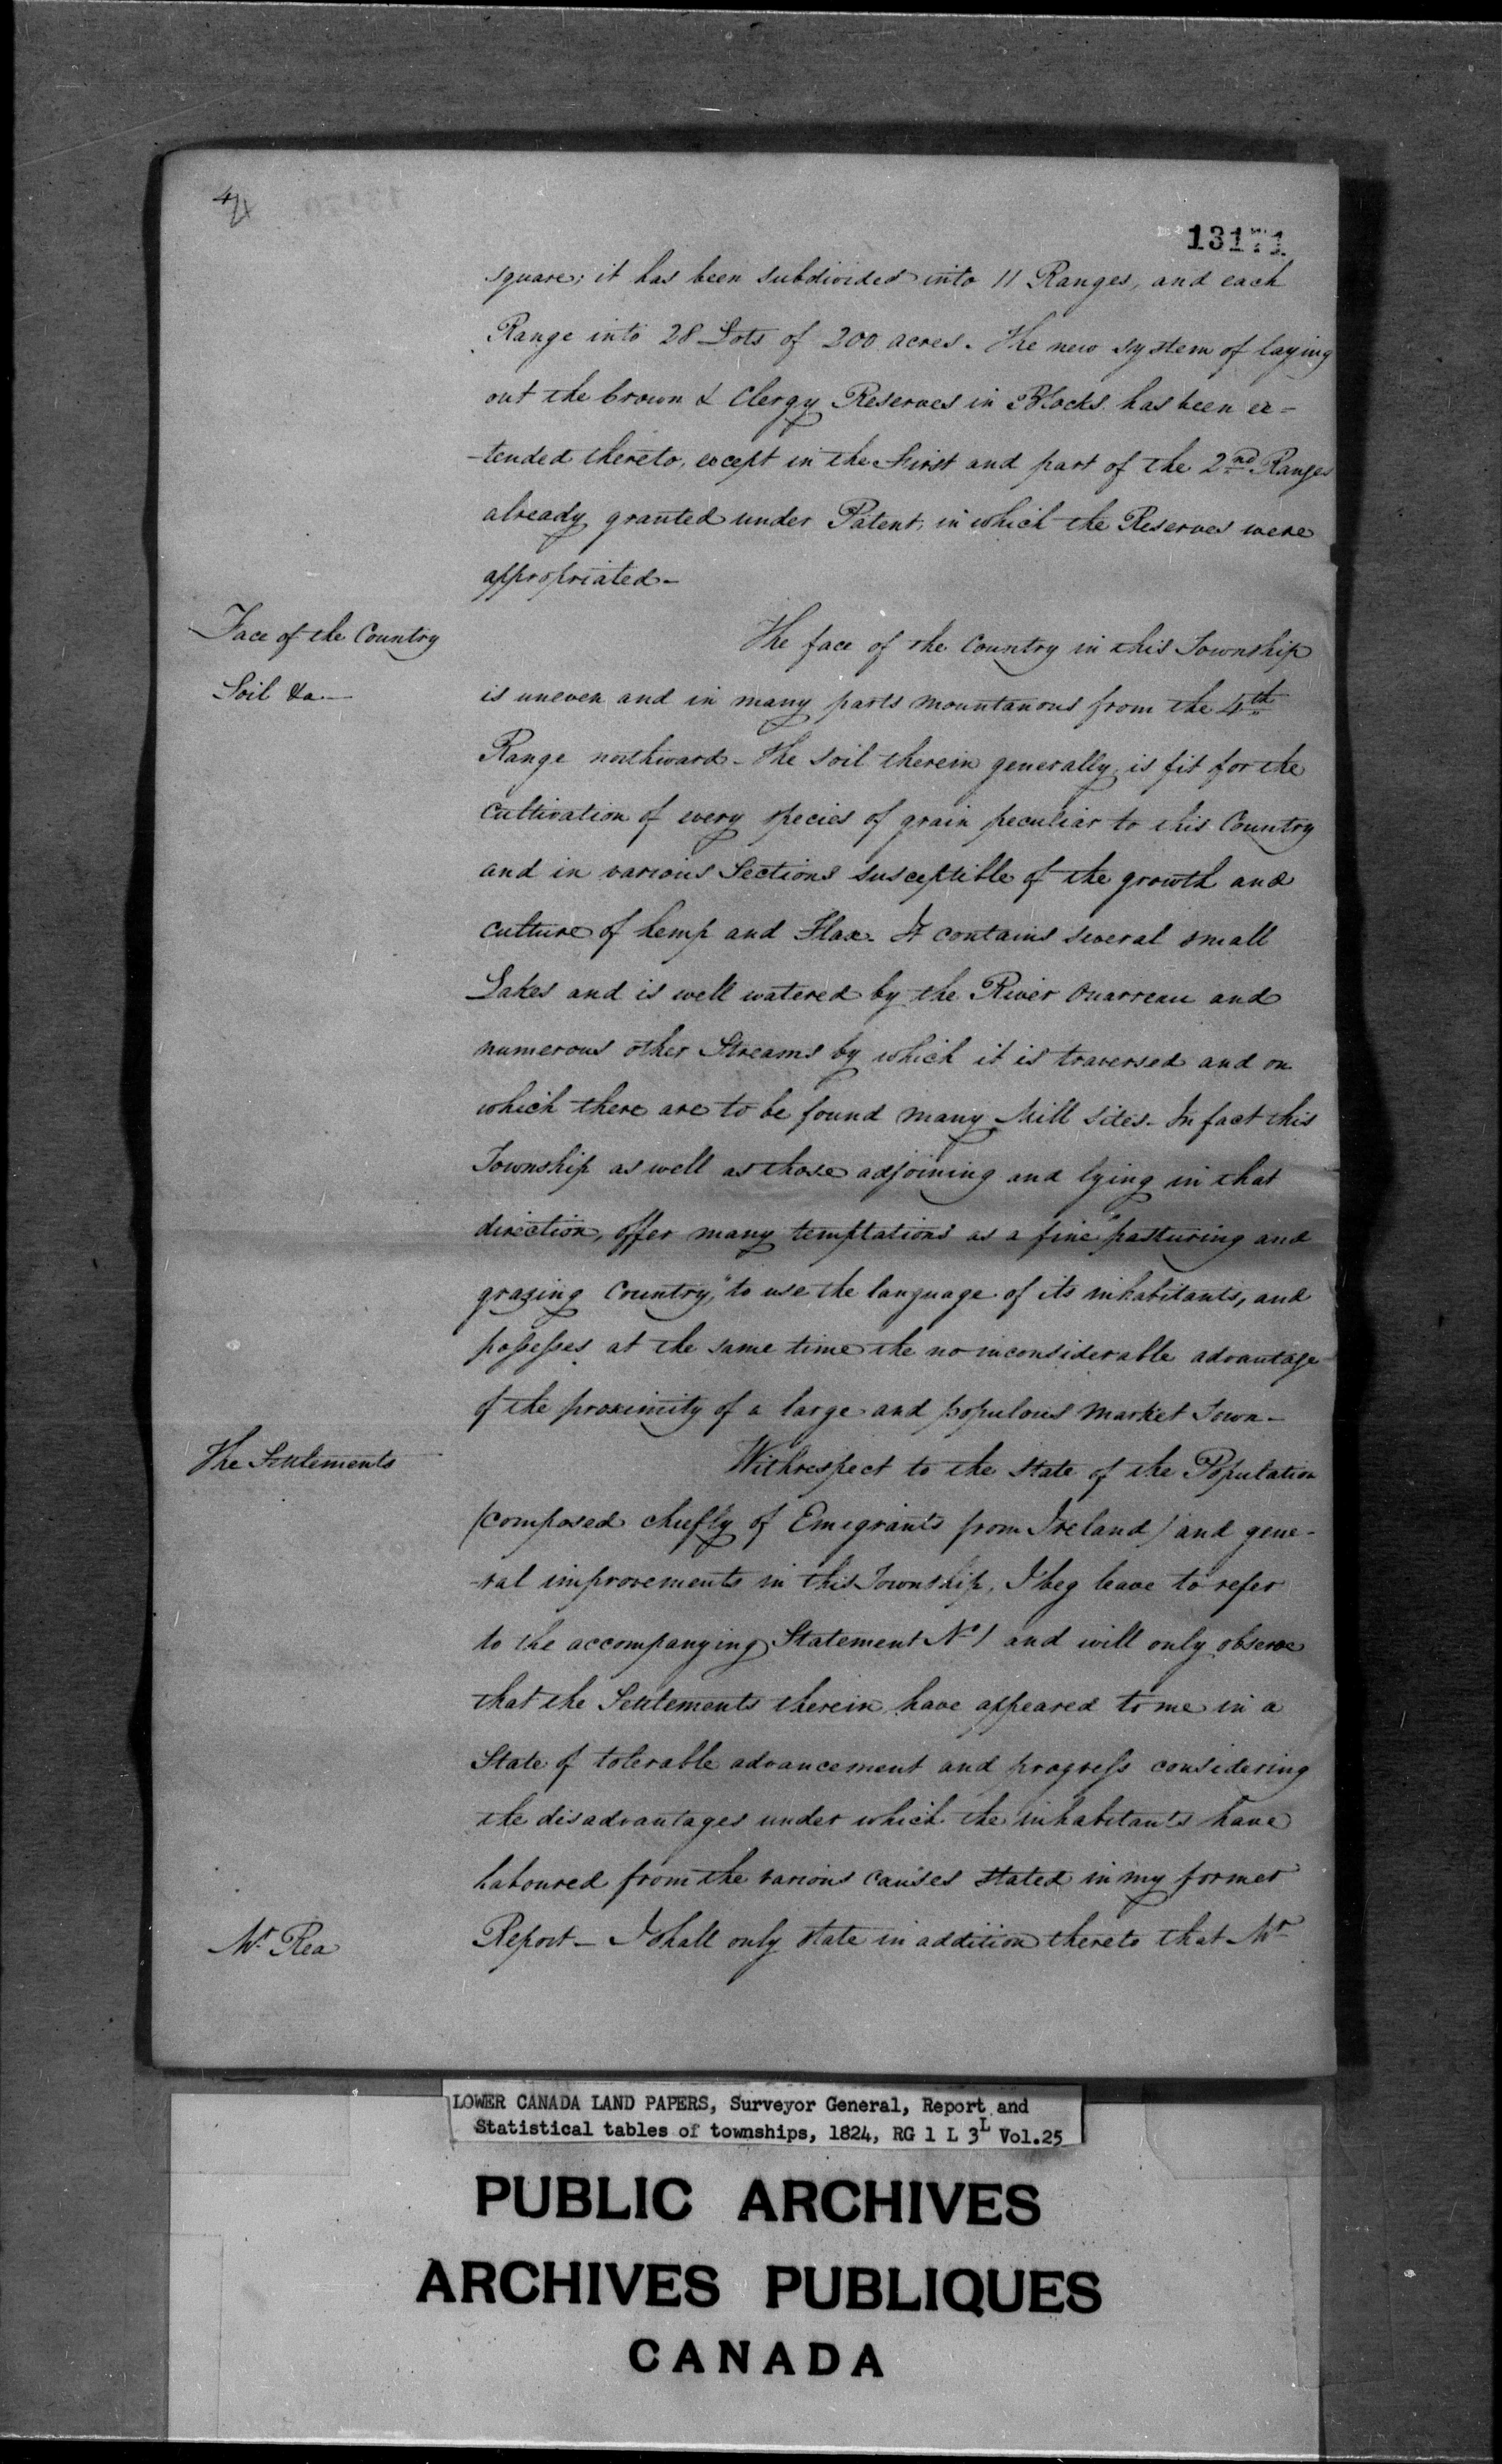 13171
square; it has been subdivided into 11 Ranges, and each
Range into 28 Lots of 200 acres. The new system of laying
out the Crown & Clergy Reserves in Blocks has been ex-
-tended thereto, except in the First and part of the 2nd Ranges
already granted under Patent, in which the Reserves were
appropriated-
Face of the Country
Soil &a-
The face of the Country in this Township
is uneven and in many parts mountanous from the 4th
Range northward- The soil therein generally, is fit for the
cultivation of every species of grain peculiar to this Country
and in various Sections susceptible of the growth and
culture of hemp and Flax. It contains several small
Lakes and is well watered by the River Ouarreau and
numerous other Streams by which it is traversed and on
which there are to be found many Mill sites- In fact this
Township as well as those adjoining and lying in that
direction, offer many temptations as a fine "pasturing and
grazing Country," to use the language of its inhabitants, and
possesses at the same time the no inconsiderable advantage
of the proximity of a large and populous Market Town-
The Settlements
With respect to the State of the Population
(composed chiefly of Emigrants from Ireland) and gene-
-ral improvements in this Township, I beg leave to refer
to the accompanying Statement No 1 and will only observe
that the Settlements therein have appeared to me in a
State of tolerable advancement and progress considering
the disadvantages under which the inhabitants have
laboured from the various causes stated in my former
Mr Rea
Report- I shall only state in addition thereto that Mr
LOWER CANADA LAND PAPERS, Surveyor General, Report and
Statistical tables of townships, 1824, RG 1 L 3L Vol.25
PUBLIC ARCHIVES
ARCHIVES PUBLIQUES
CANADA